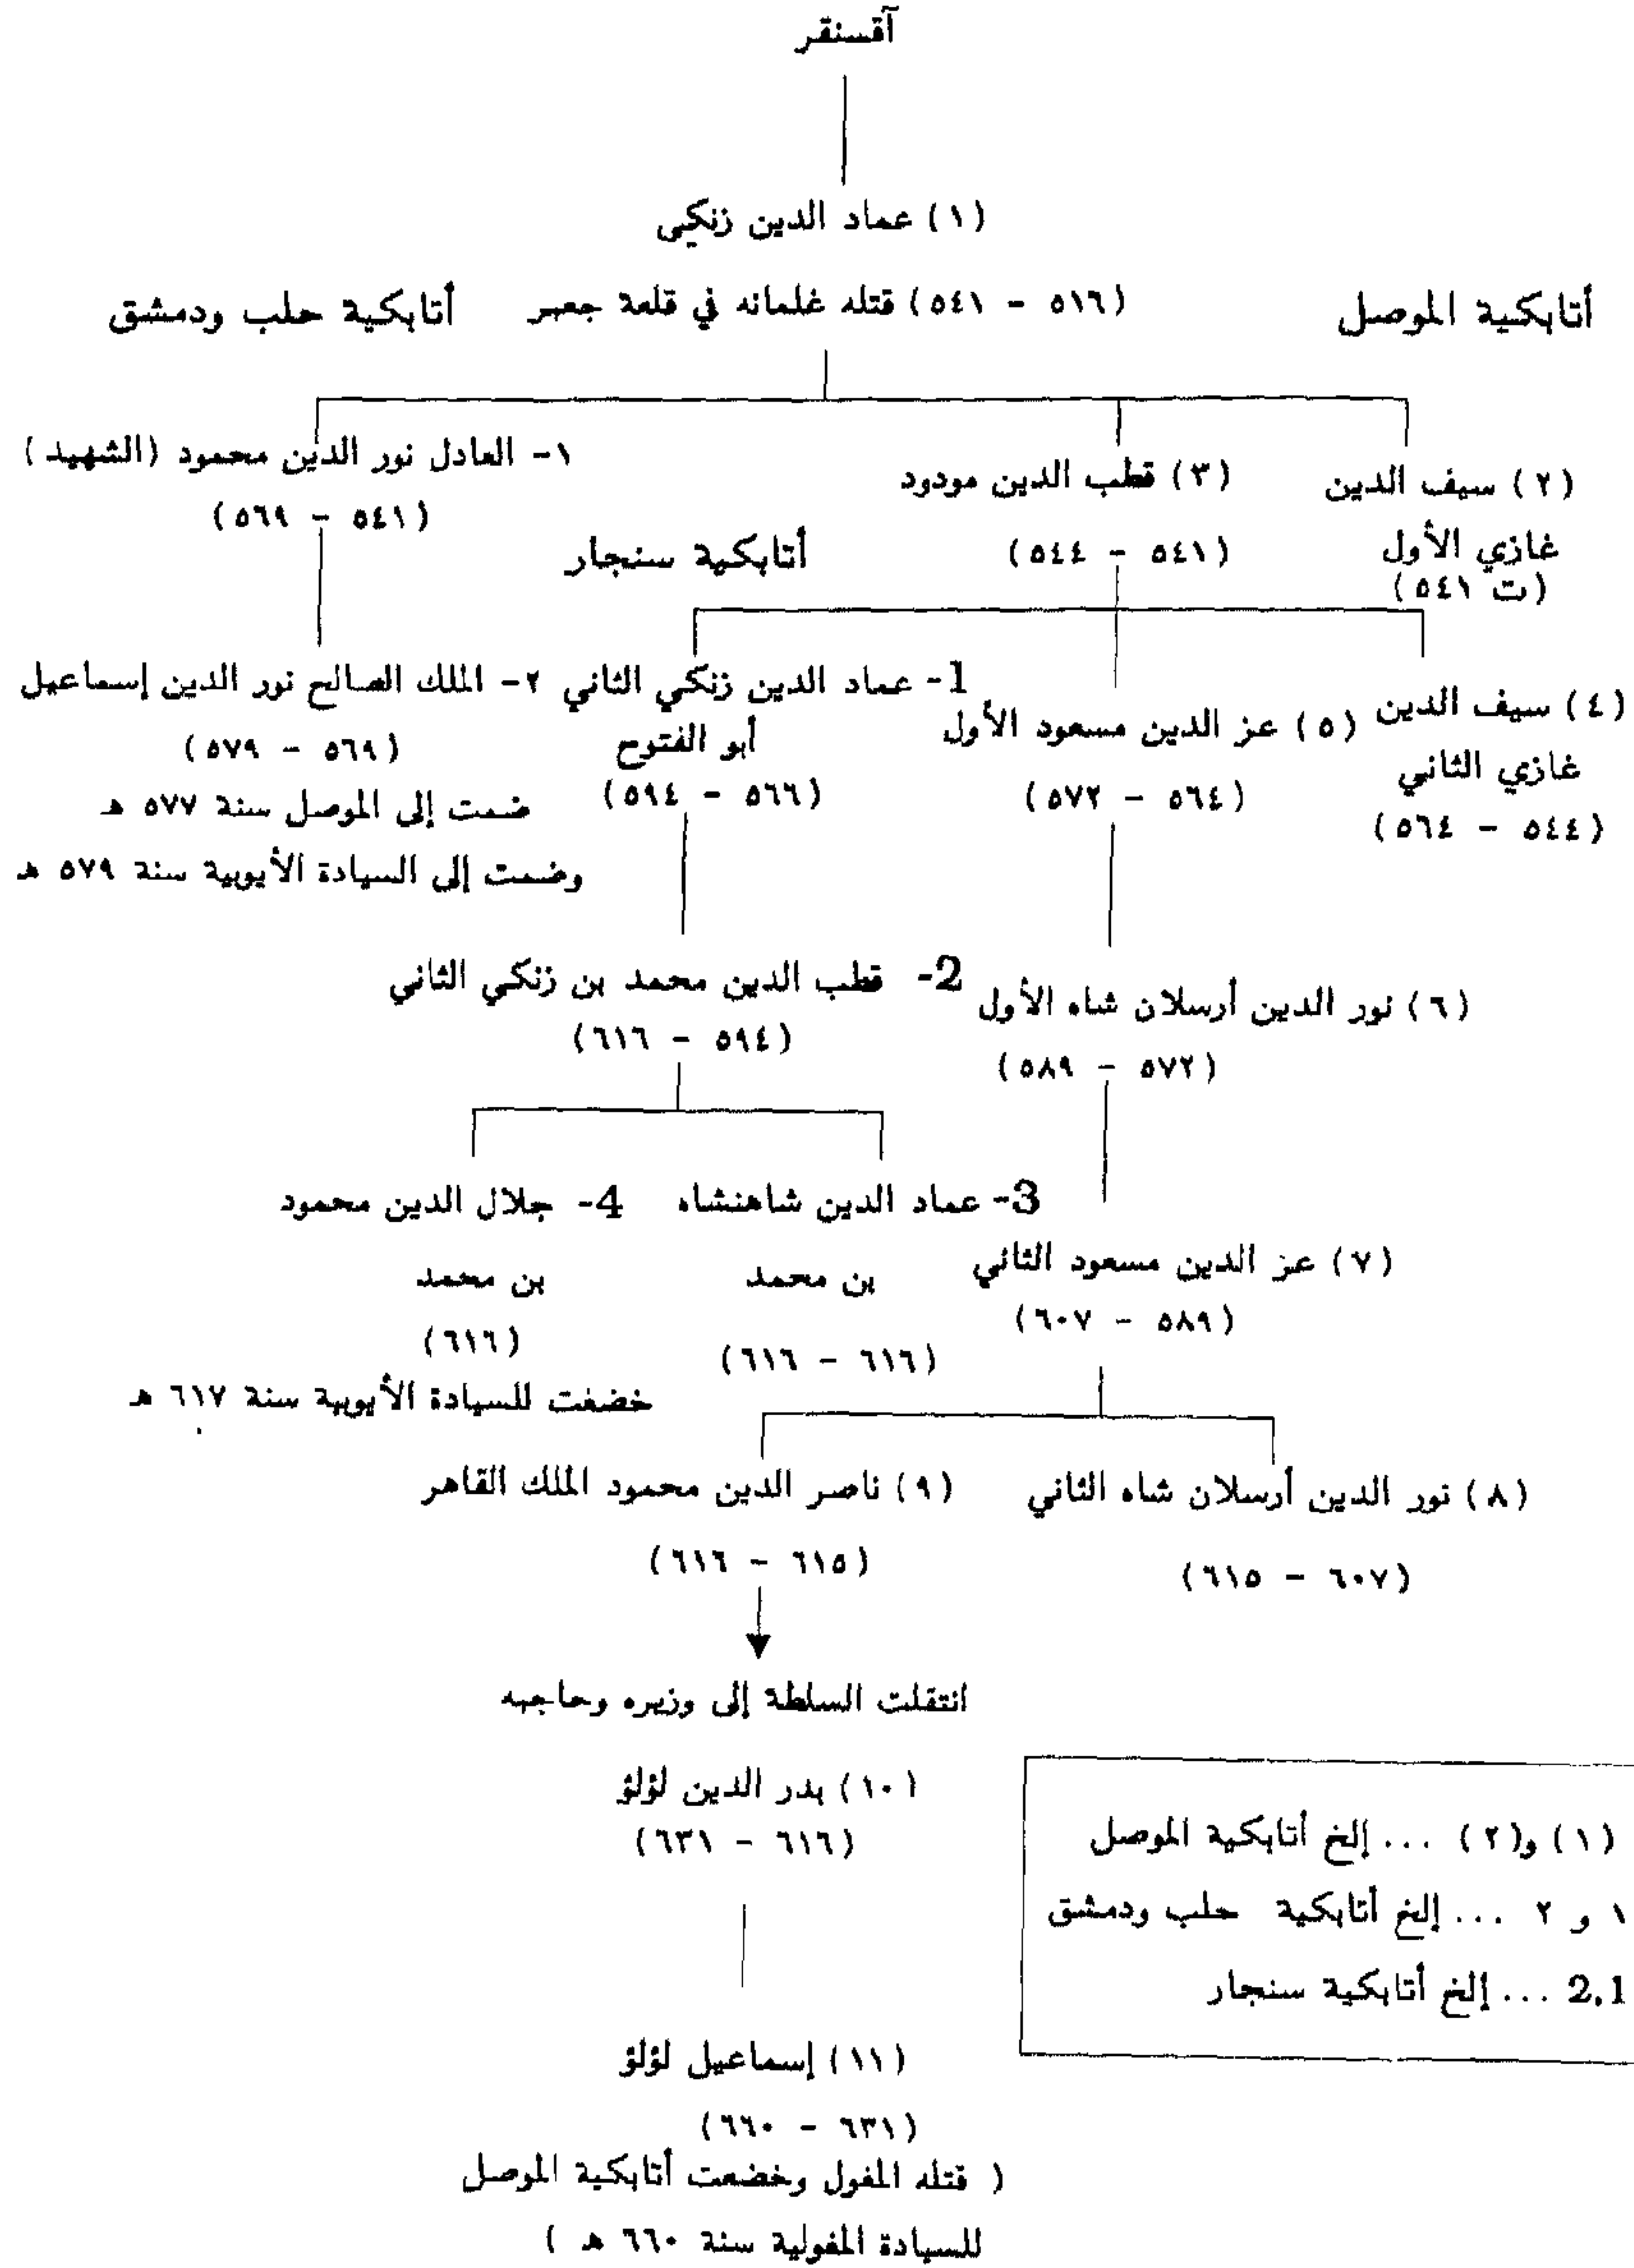 آقسنقر
(١) عماد الدين زنكي
أتابكية الموصل
(٥١٦ - ٥٤١) قتله غلمانه في قلعة جعبر
أتابكية حلب ودمشق
(٢) سيف الدين
غازي الأول
(ت ٥٤١)
(٣) قطب الدين مودود
(٥٤١ - ٥٤٤)
١- العادل نور الدين محمود (الشهيد)
(٥٤١ - ٥٦٩)
أتابكية سنجار
(٤) سيف الدين
غازي الثاني
(٥٤٤ - ٥٦٤)
(٥) عز الدين مسعود الأول
(٥٦٤ - ٥٧٢)
1- عماد الدين زنكي الثاني
أبو الفتوح
(٥٦٦ - ٥٩٤)
٢- الملك الصالح نور الدين إسماعيل
(٥٦٩ - ٥٧٩)
ضمت إلى الموصل سنة ٥٧٧ هـ
وضمت إلى السيادة الأيوبية سنة ٥٧٩ هـ
(٦) نور الدين أرسلان شاه الأول
(٥٧٢ - ٥٨٩)
2- قطب الدين محمد بن زنكي الثاني
(٥٩٤ - ٦١٦)
(٧) عز الدين مسعود الثاني
(٥٨٩ - ٦٠٧)
3- عماد الدين شاهنشاه
بن محمد
(٦١٦ - ٦١٦)
4- جلال الدين محمود
بن محمد
(٦١٦)
خضفت للسيادة الأيوبية سنة ٦١٧ هـ
(٨) نور الدين أرسلان شاه الثاني
(٦٠٧ - ٦١٥)
(٩) ناصر الدين محمود الملك القاهر
(٦١٥ - ٦١٦)
انتقلت السلطة إلى وزيره وحاجبه
(١٠) بدر الدين لؤلؤ
(٦١٦ - ٦٣١)
(١١) إسماعيل لؤلؤ
(٦٣١ - ٦٦٠)
( قتله المغول وخضعت أتابكية الموصل
للسيادة المغولية سنة ٦٦٠ هـ )
(١) و(٢) ... إلخ أتابكية الموصل
١ و ٢ ... إلخ أتابكية حلب ودمشق
2.1 ... إلخ أتابكية سنجار